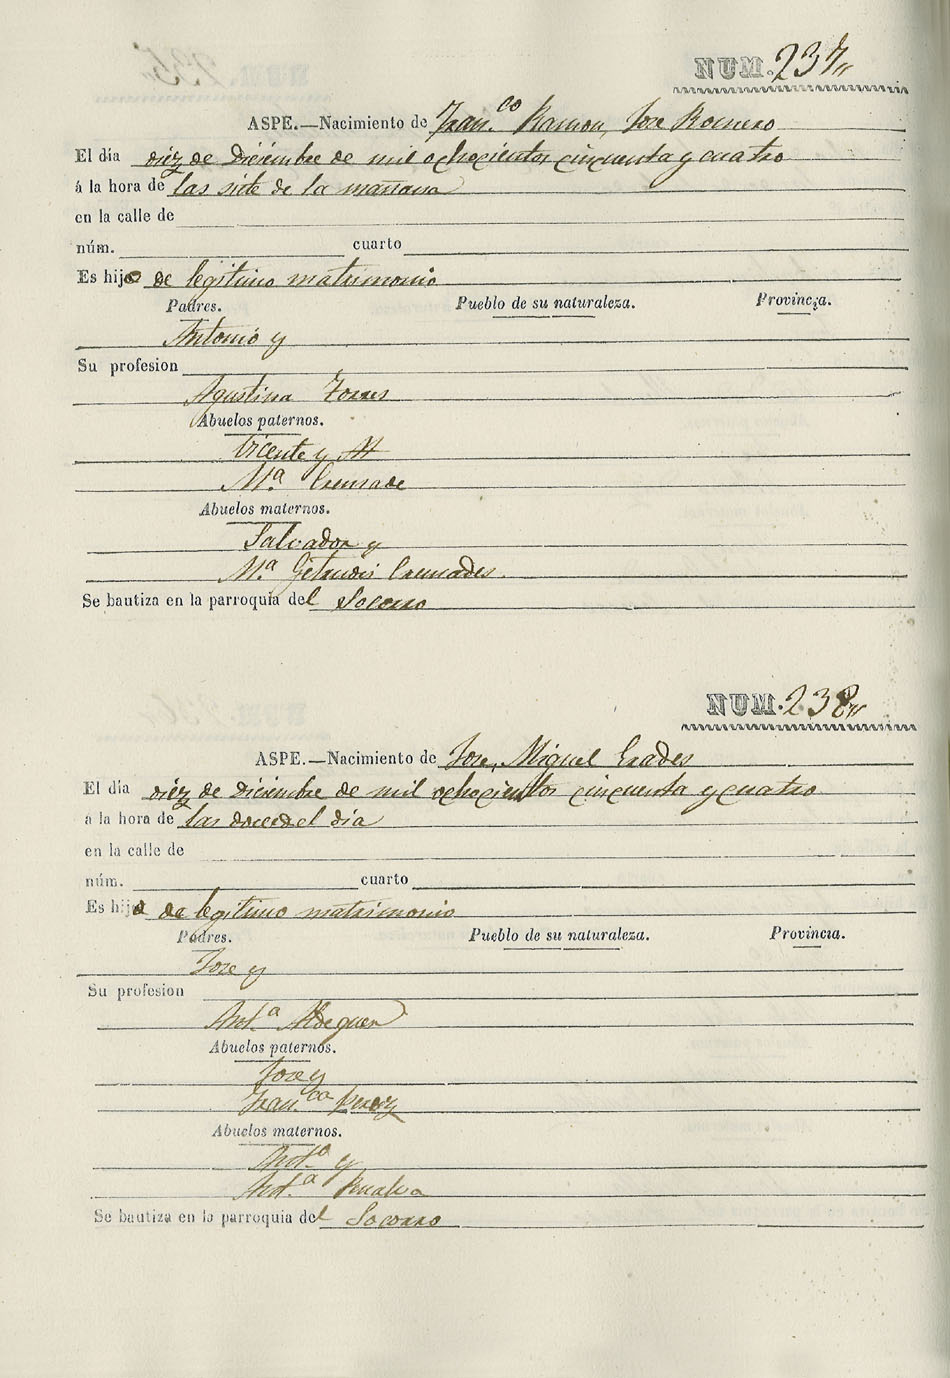 NUM. 237
ASPE.—Nacimiento de Fran.co Ramon, Jose Romero
El día diez de Diciembre de mil ochocientos cincuenta y cuatro
á la hora de las siete de la mañana
en la calle de
núm. cuarto
Es hijo de legitimo matrimonio
Padres. Pueblo de su naturaleza. Provincia.
Antonio y
Su profesion
Agustina Torres
Abuelos paternos.
Vicente y
M.a Cremade
Abuelos maternos.
Salvador y
M.a Getrudis Cremades
Se bautiza en la parroquia del Socorro
NUM. 238
ASPE.—Nacimiento de Jose, Miguel Erades
El día diez de Diciembre de mil ochocientos cincuenta y cuatro
á la hora de las doce del dia
en la calle de
núm. cuarto
Es hijo de legitimo matrimonio
Padres. Pueblo de su naturaleza. Provincia.
Jose y
Su profesion
Ant.a Aldeguer
Abuelos paternos.
Jose y
Fran.ca
Abuelos maternos.
Ant.o y
Ant.a
Se bautiza en la parroquia del Socorro